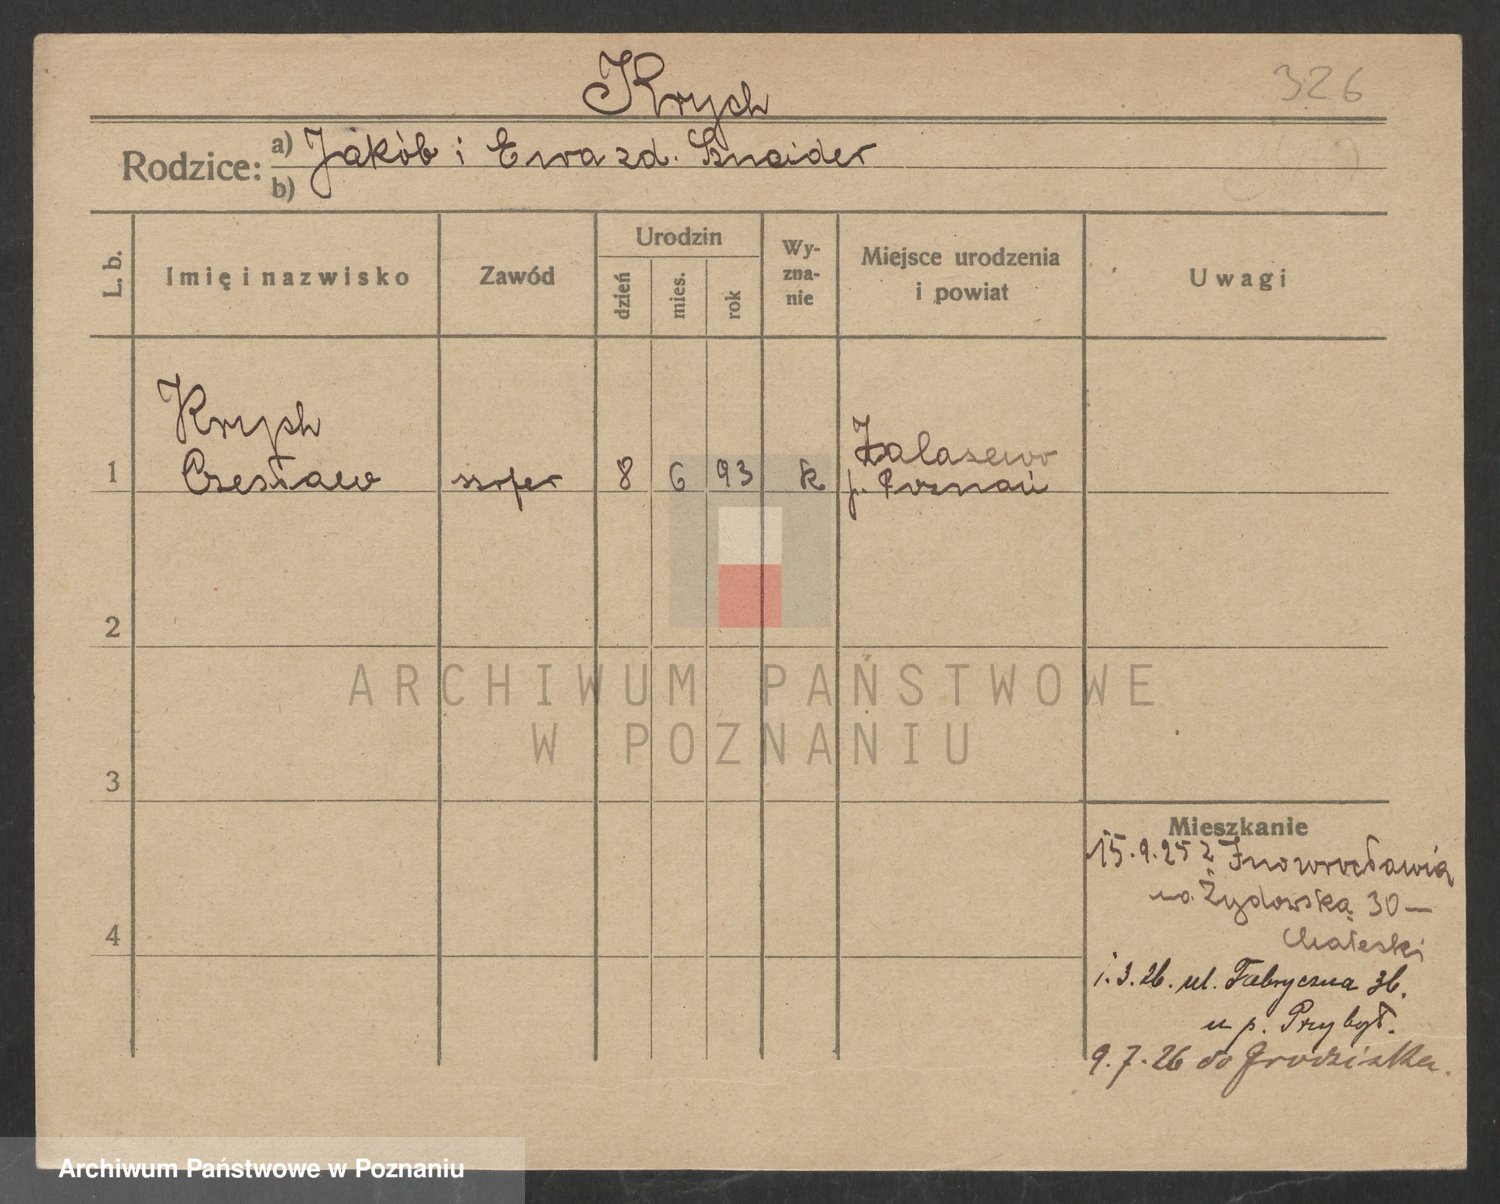 Krych
326
Rodzice:
a) Jakób i Ewa zd. Sznaider
b)
L. b.
Imię i nazwisko
Zawód
Urodzin
dzień
mies.
rok
Wy-
zna-
nie
Miejsce urodzenia
i powiat
Uwagi
Krych
1 Czesław szofer 8 6 93 k Zalasewo
p. Poznań
2
ARCHIWUM PAŃSTWOWE
W POZNANIU
3
Mieszkanie
15.9.25 z Inowrocławia
na Żydowską 30 –
4
1.3.26. ul. Fabryczna 36.
u p. Przybył.
9.7.26 do Grodziska.
Archiwum Państwowe w Poznaniu